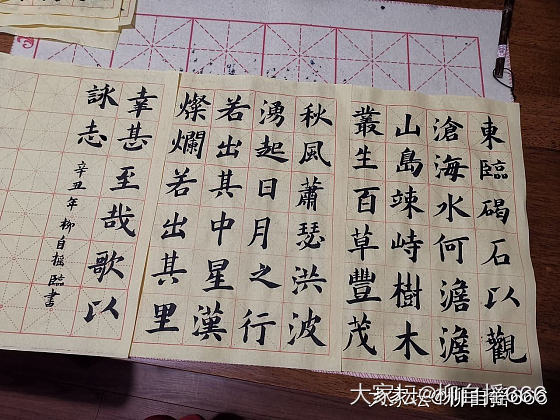 東臨碣石以觀
滄海水何澹澹
山島竦峙樹木
叢生百草豐茂
秋風蕭瑟洪波
湧起日月之行
若出其中星漢
燦爛若出其里
幸甚至哉歌以
詠志
辛丑年柳自摇臨書
大家坛@柳自摇666